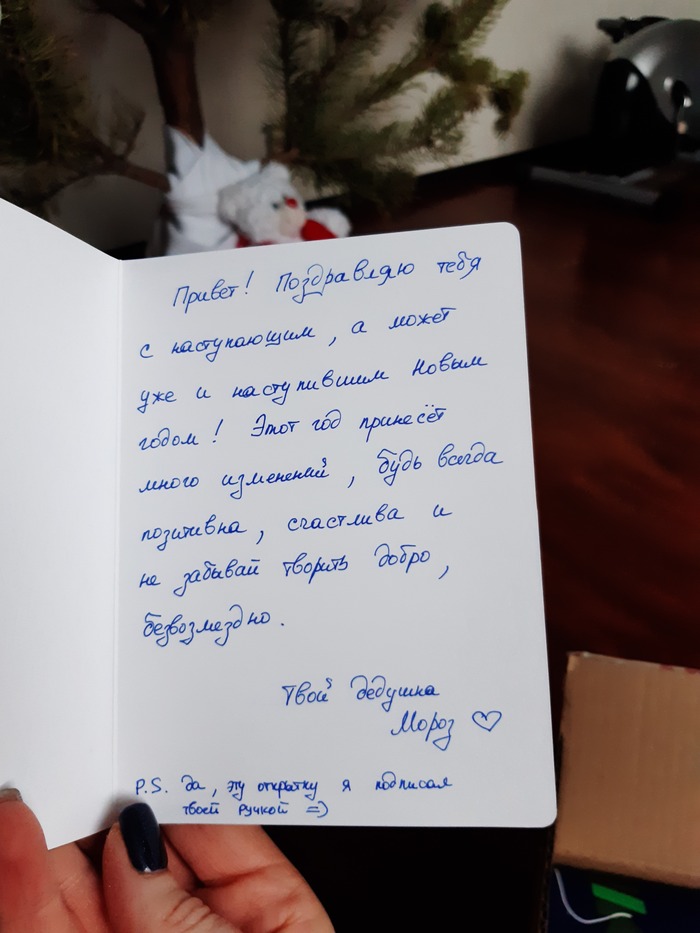 Привет! Поздравляю тебя
с наступающим, а может
уже и наступившим Новым
годом! Этот год принесёт
много изменений, будь всегда
позитивна, счастлива и
не забывай творить добро,
безвозмездно.
Твой дедушка
Мороз ♡
P.S. Да, эту открытку я подписал
твоей ручкой =)